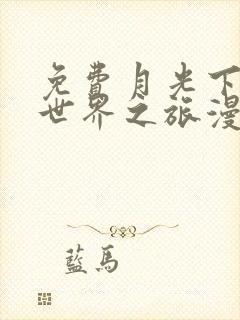 免費月光下
世界之旅漫
藍馬